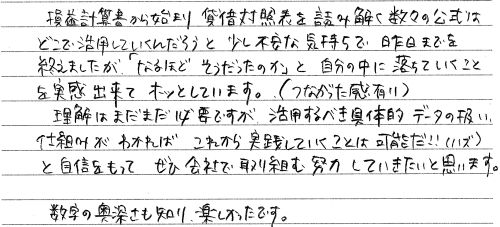 損益計算書から始まり 貸借対照表を読み解く数々の公式は
どこで活用していくんだろうと 少し不安な気持ちで 昨日までを
終えましたが、「なるほど そうだったのか」と 自分の中に 落ちていくこと
を実感出来て ホッとしています。(つながった感有り!)
理解はまだまだ必要ですが、活用するべき具体的 データの扱い、
仕組みがわかれば これから実践していくことは可能だ!!
と自信をもって ぜひ会社で取り組む努力していきたいと思います。
数字の奥深さも知り、楽しかったです。